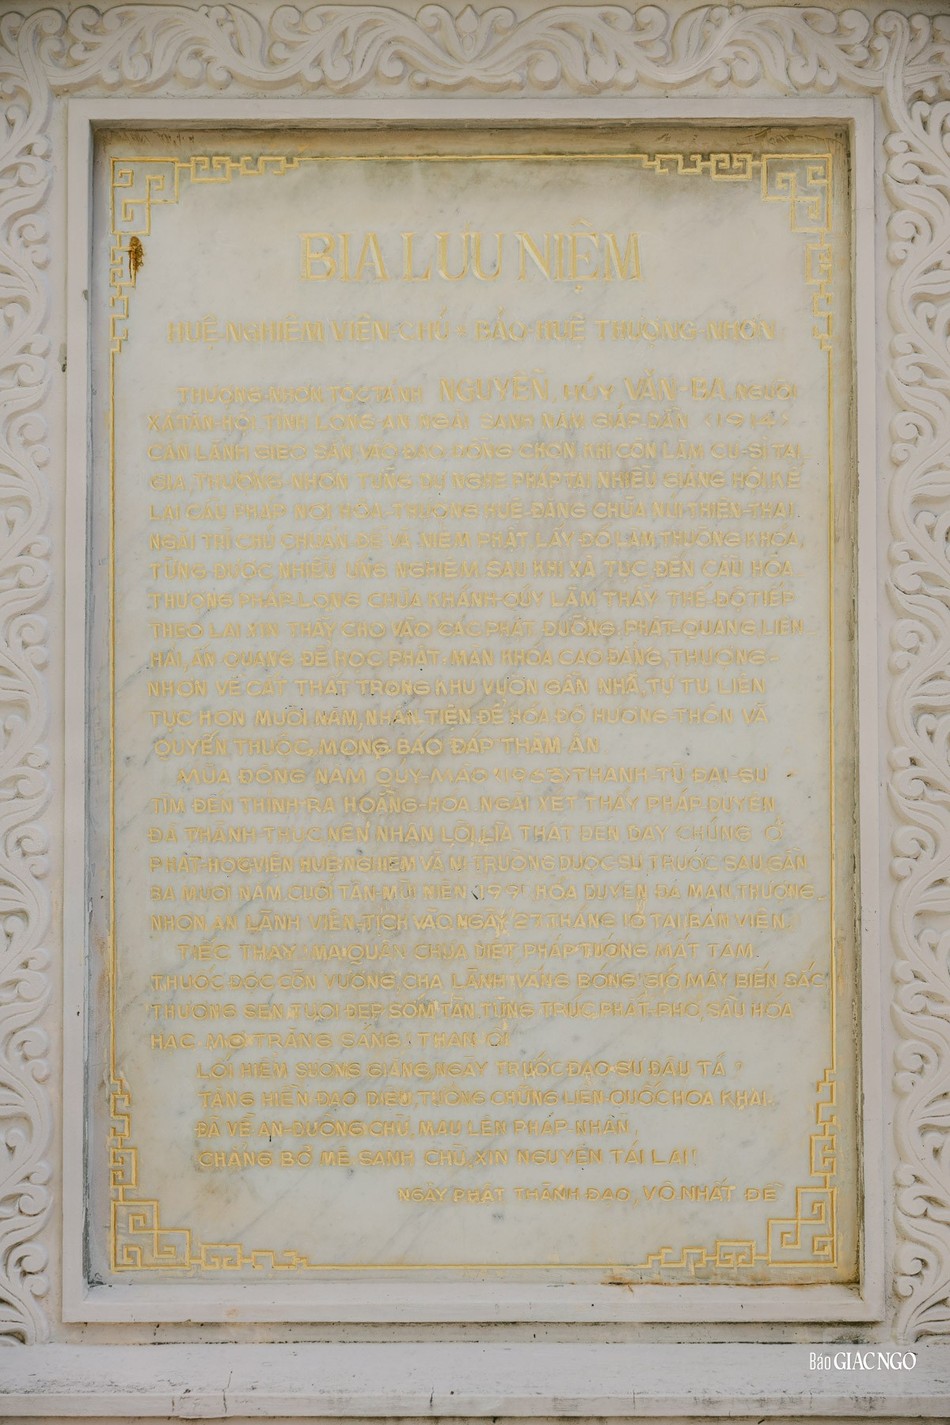 BIA LƯU NIỆM
HUỆ-NGHIÊM VIỆN CHỦ : BẢO-HUỆ THƯỢNG-NHƠN
THƯỢNG-NHƠN TỘC TÁNH NGUYỄN, HÚY VĂN-BA, NGƯỜI
XÃ TÂN-HỘI, TỈNH LONG-AN NGÀI SANH NĂM GIÁP-DẦN (1914)
CĂN LÀNH GIEO SẴN VÀO ĐẠO KHI CÒN LÀM CƯ-SĨ TẠI
GIA, THƯỢNG-NHƠN TỪNG DỰ NGHE PHÁP TẠI NHIỀU GIẢNG HỘI KẾ
LẠI CẦU PHÁP NƠI HÒA-THƯỢNG HUỆ-ĐĂNG CHÙA NÚI THIÊN-THAI.
NGÀI TRÌ CHÚ CHUẨN-ĐỀ VÀ NIỆM PHẬT, LẤY ĐÓ LÀM THƯỜNG KHÓA,
TỪNG ĐƯỢC NHIỀU ỨNG NGHIỆM. SAU KHI XẢ TỤC ĐẾN CẦU HÒA
THƯỢNG PHÁP-LONG CHÙA KHÁNH-QUÝ LÀM THẦY THẾ-ĐỘ TIẾP
THEO LẠI XIN THẦY CHO VÀO CÁC PHẬT ĐƯỜNG: PHẬT-QUANG, LIÊN
HẢI, ẤN QUANG ĐỂ HỌC PHẬT. MÃN KHÓA CAO ĐẲNG, THƯỢNG-
NHƠN VỀ CẤT THẤT TRONG KHU VƯỜN GẦN NHÀ, TỰ TU LIÊN
TỤC HƠN MƯỜI NĂM, NHÂN TIỆN ĐỂ HÓA ĐỘ HƯƠNG-THÔN VÀ
QUYẾN THUỘC, MONG BÁO ĐÁP THÂM ÂN.
MÙA ĐÔNG NĂM QUÝ-MÃO (1963) THANH-TỪ ĐẠI-SƯ
TÌM ĐẾN THỈNH RA HOẰNG-HÓA. NGÀI XÉT THẤY PHÁP DUYÊN
ĐÃ THÀNH THỤC NÊN NHẬN LỜI, LÌA THẤT ĐẾN DẠY CHÚNG Ở
PHẬT-HỌC VIỆN HUỆ-NGHIÊM VÀ NI-TRƯỜNG DƯỢC SƯ TRƯỚC SAU GẦN
BA MƯƠI NĂM. CUỐI TÂN-MÙI NIÊN 1991 HÓA DUYÊN ĐÃ MÃN, THƯỢNG-
NHƠN AN LÀNH VIÊN-TỊCH VÀO NGÀY 27 THÁNG 10 TẠI BẢN VIỆN.
TIẾC THAY! MA QUÂN CHƯA DIỆT, PHÁP TƯỚNG MẤT TĂM.
THUỐC ĐỘC CÒN VƯƠNG, CHA LÀNH VẮNG BÓNG! GIÓ MÂY BIẾN SẮC
THƯƠNG SEN TƯƠI ĐẸP SỚM TÀN, TÙNG TRÚC PHẤT-PHƠ, SẦU HÓA
HẠC MƠ TRĂNG SÁNG! THAN ÔI!
LỐI HIỂM SƯƠNG GIĂNG, NGÀY TRƯỚC ĐẠO-SƯ ĐÂU TÁ ?
TĂNG HIỀN ĐẠO DIỄN, TƯỞNG CHỪNG LIÊN-QUỐC HOA KHAI.
ĐÃ VỀ AN-DƯỠNG CHỪ, MAU LÊN PHÁP-NHẪN,
CHẲNG BỎ MÊ SANH CHỪ, XIN NGUYỆN TÁI LAI!
NGÀY PHẬT THÀNH ĐẠO, VÔ NHẤT ĐỀ
Báo GIACNGO